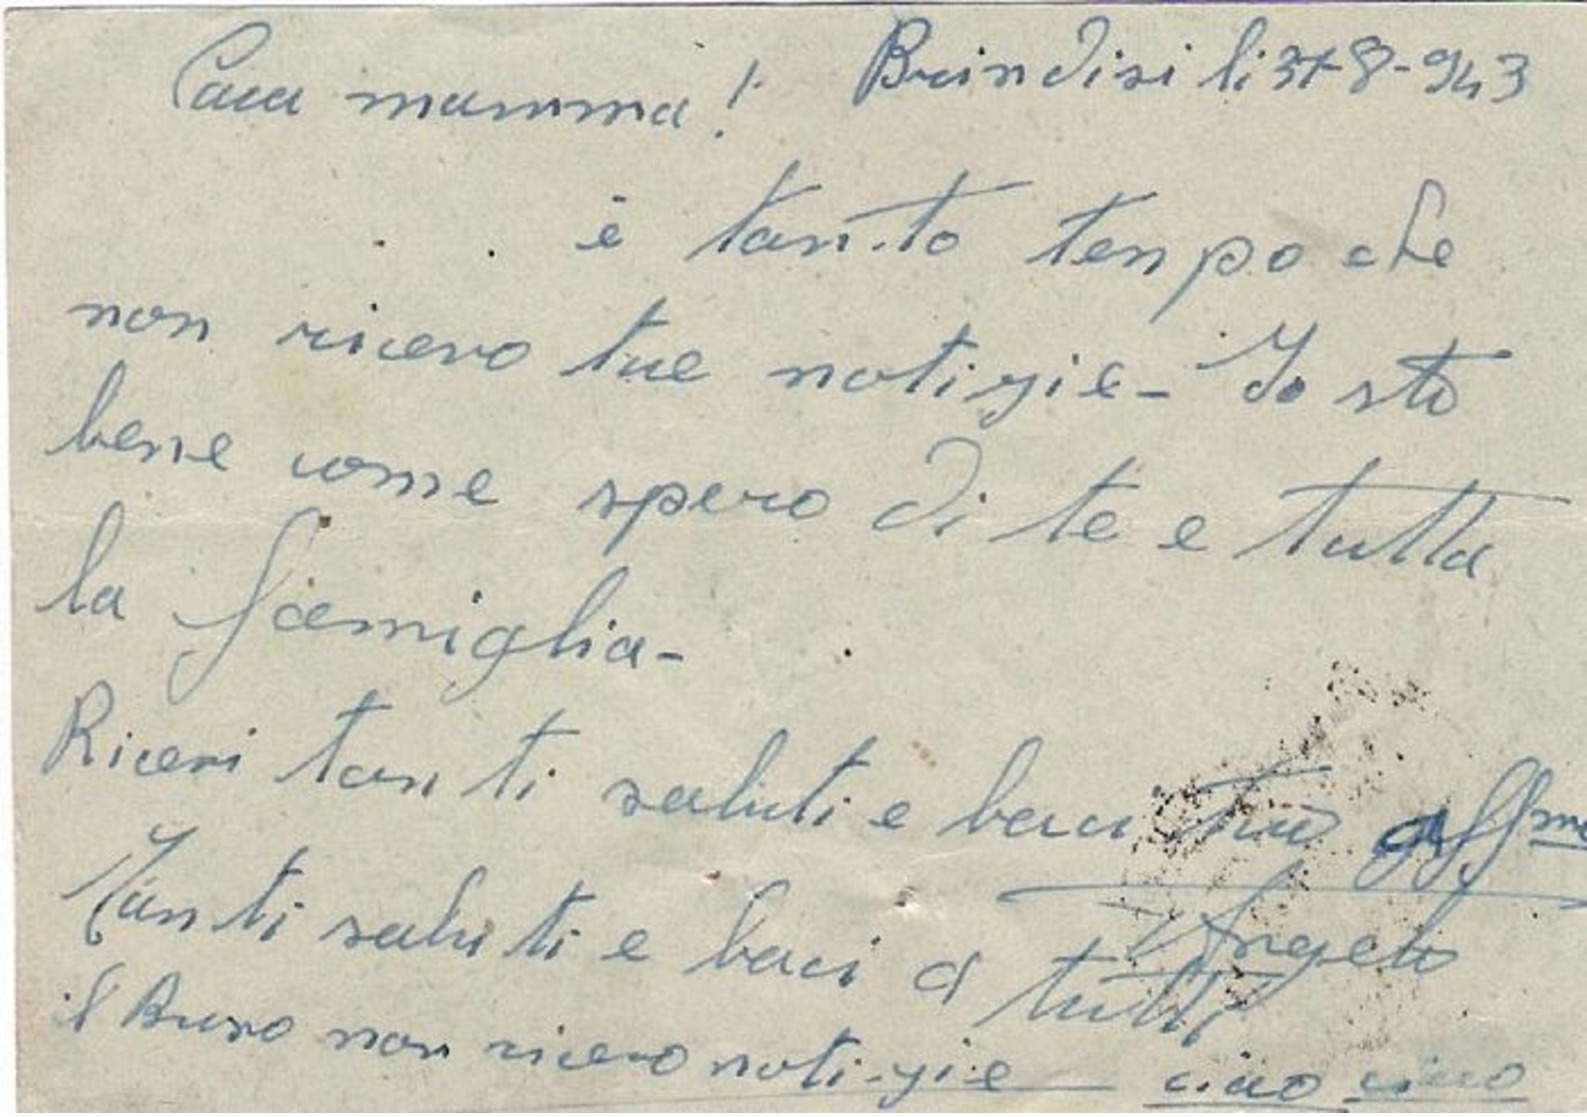 Cara mamma! Brindisi li 31-8-943
è tanto tenpo che
non ricevo tue notizie- Io sto
bene come spero di te e tutta
la famiglia-
Ricevi tanti saluti e baci tuo affmo
Angelo
Tanti saluti e baci a tutti
il Bruno non ricevo notizie ciao ciao